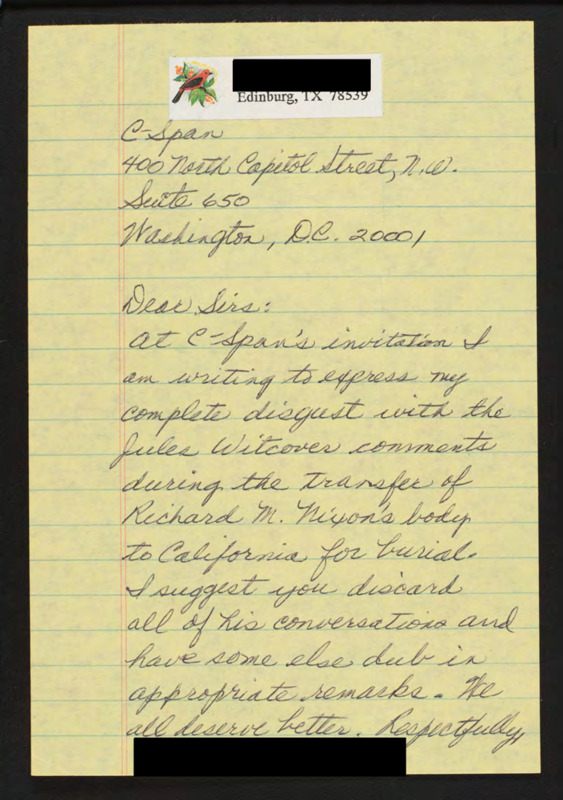 Edinburg, TX 78539
C-Span
400 North Capitol Street, N.W.
Suite 650
Washington, D.C. 20001
Dear Sirs:
At C-Span's invitation I
am writing to express my
complete disgust with the
Jules Witcover comments
during the transfer of
Richard M. Nixon's body
to California for burial.
I suggest you discard
all of his conversations and
have some else dub in
appropriate remarks. We
all deserve better. Respectfully,